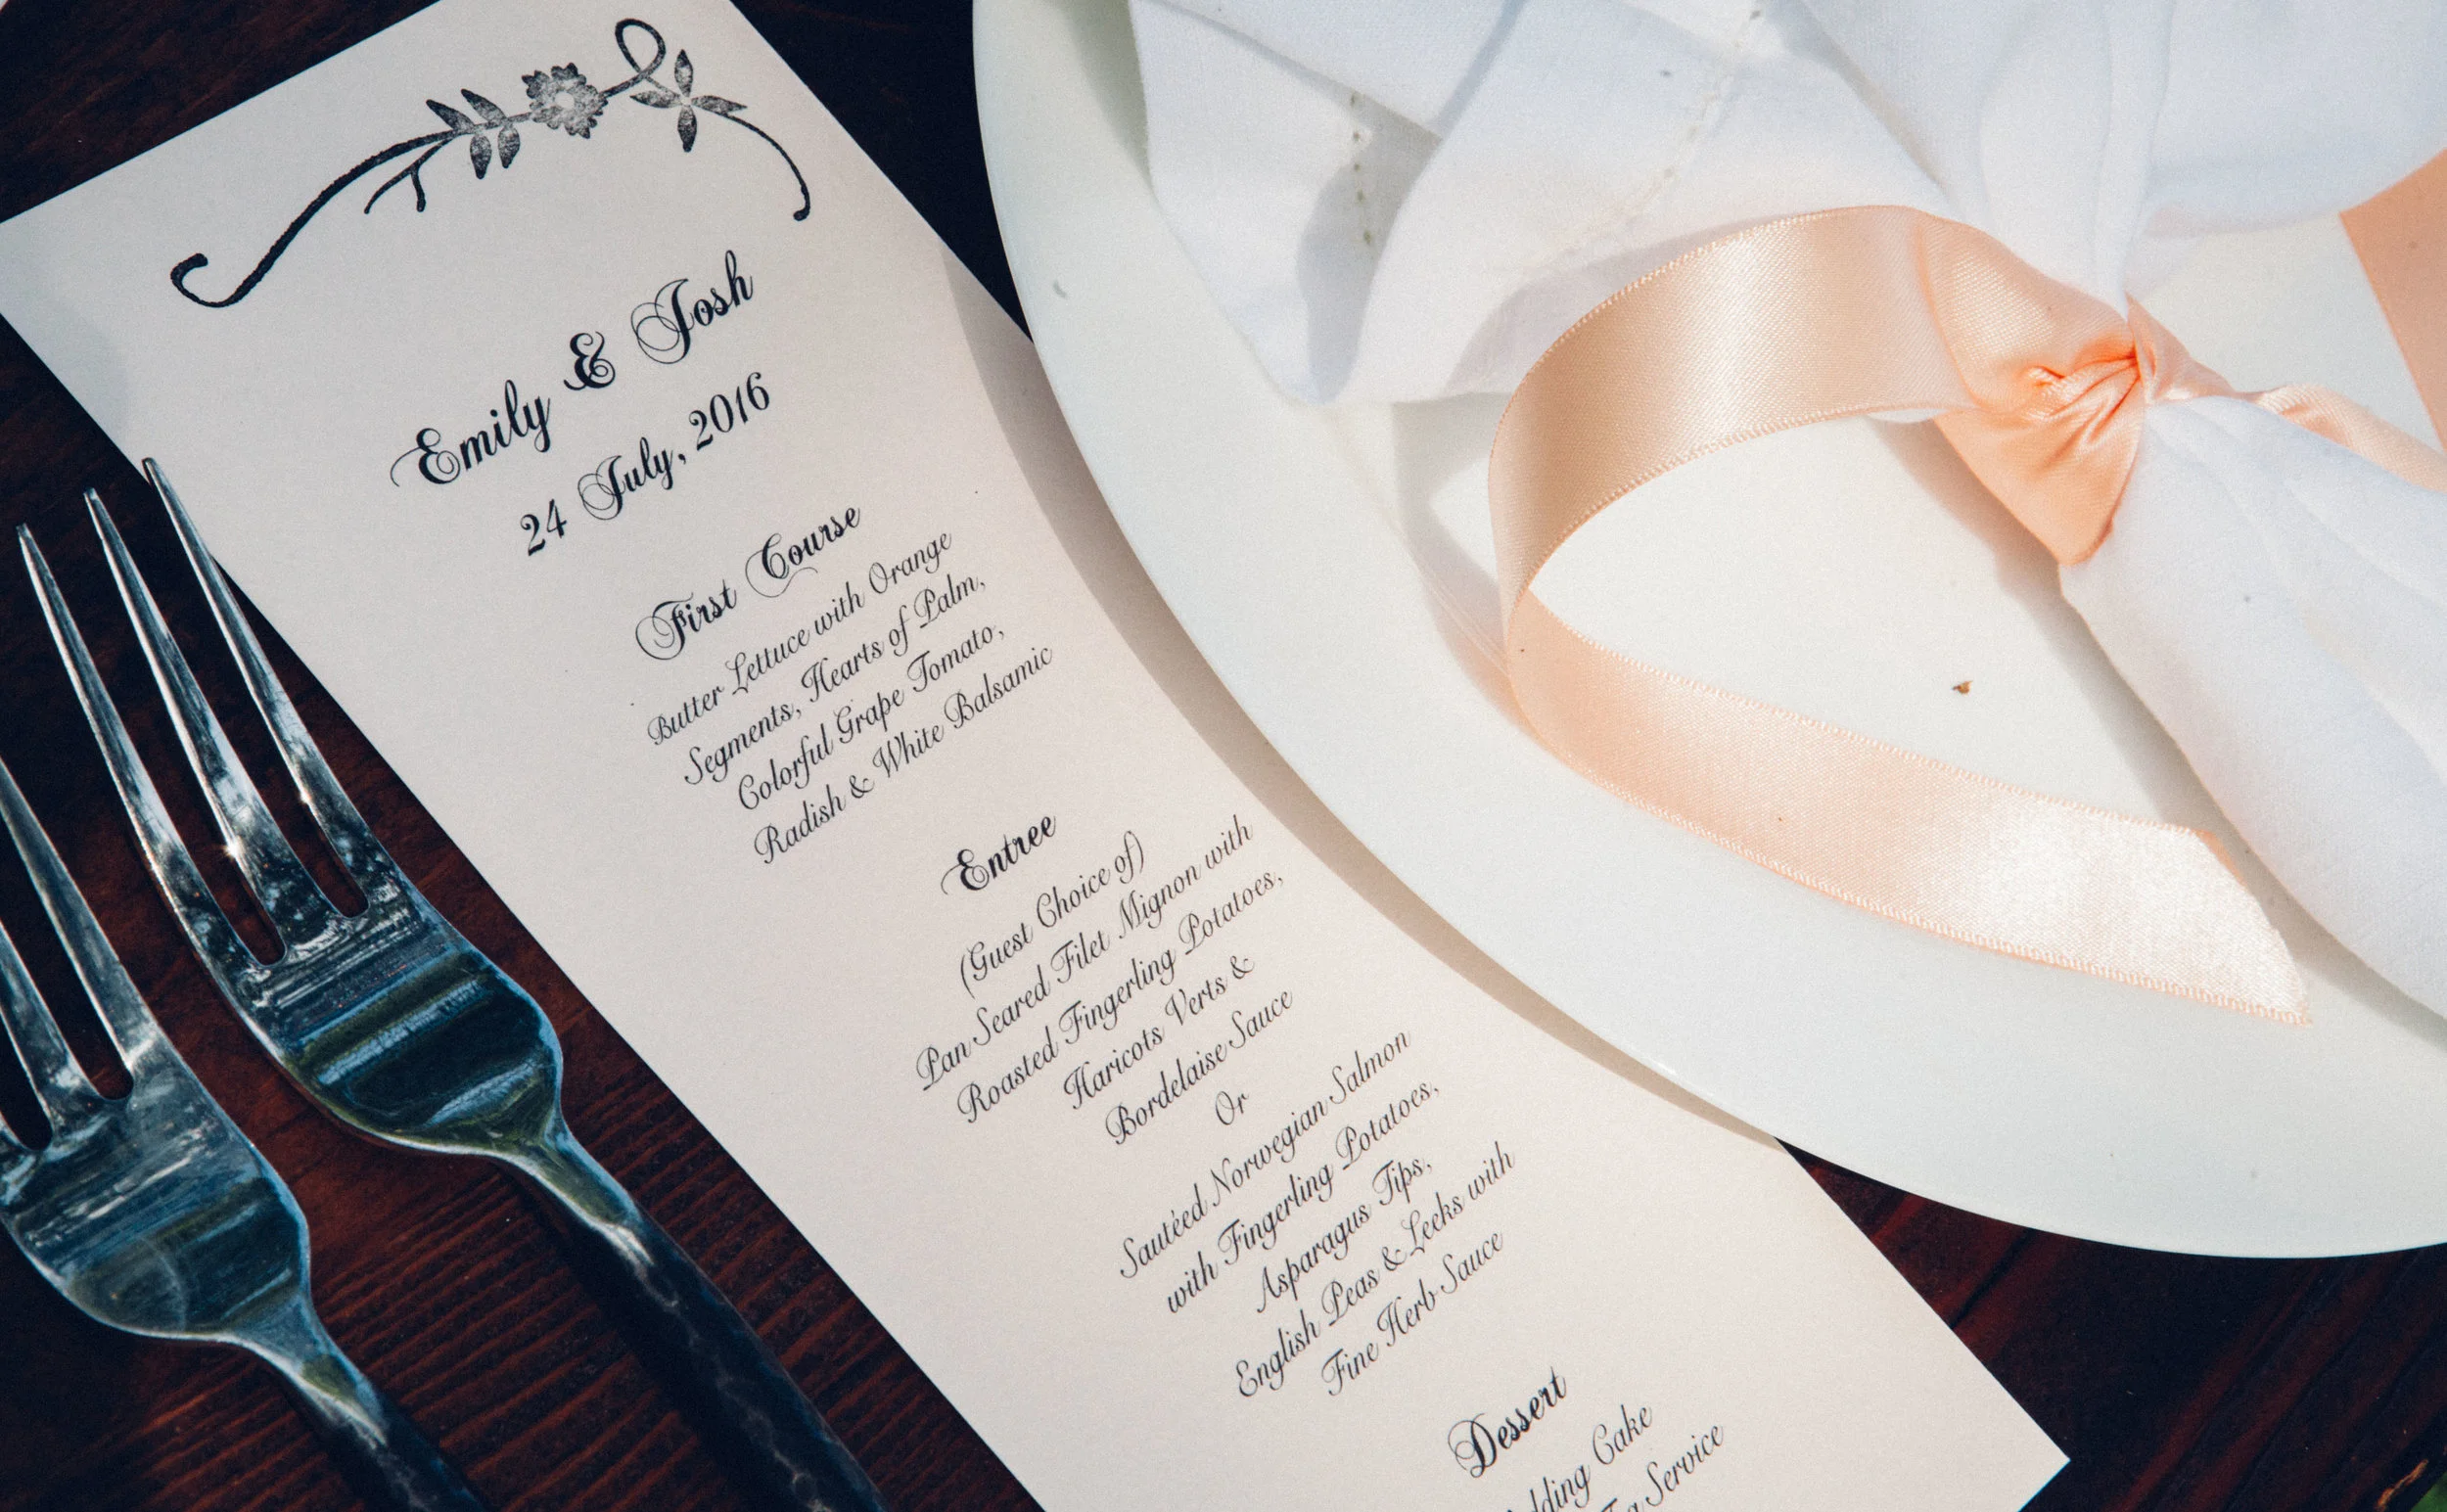 Emily & Josh
24 July, 2016
First Course
Butter Lettuce with Orange
Segments, Hearts of Palm,
Colorful Grape Tomato,
Radish & White Balsamic
Entree
(Guest Choice of)
Pan Seared Filet Mignon with
Roasted Fingerling Potatoes,
Haricots Verts &
Bordelaise Sauce
Or
Sautéed Norwegian Salmon
with Fingerling Potatoes,
Asparagus Tips,
English Peas & Leeks with
Fine Herb Sauce
Dessert
Cake
Service